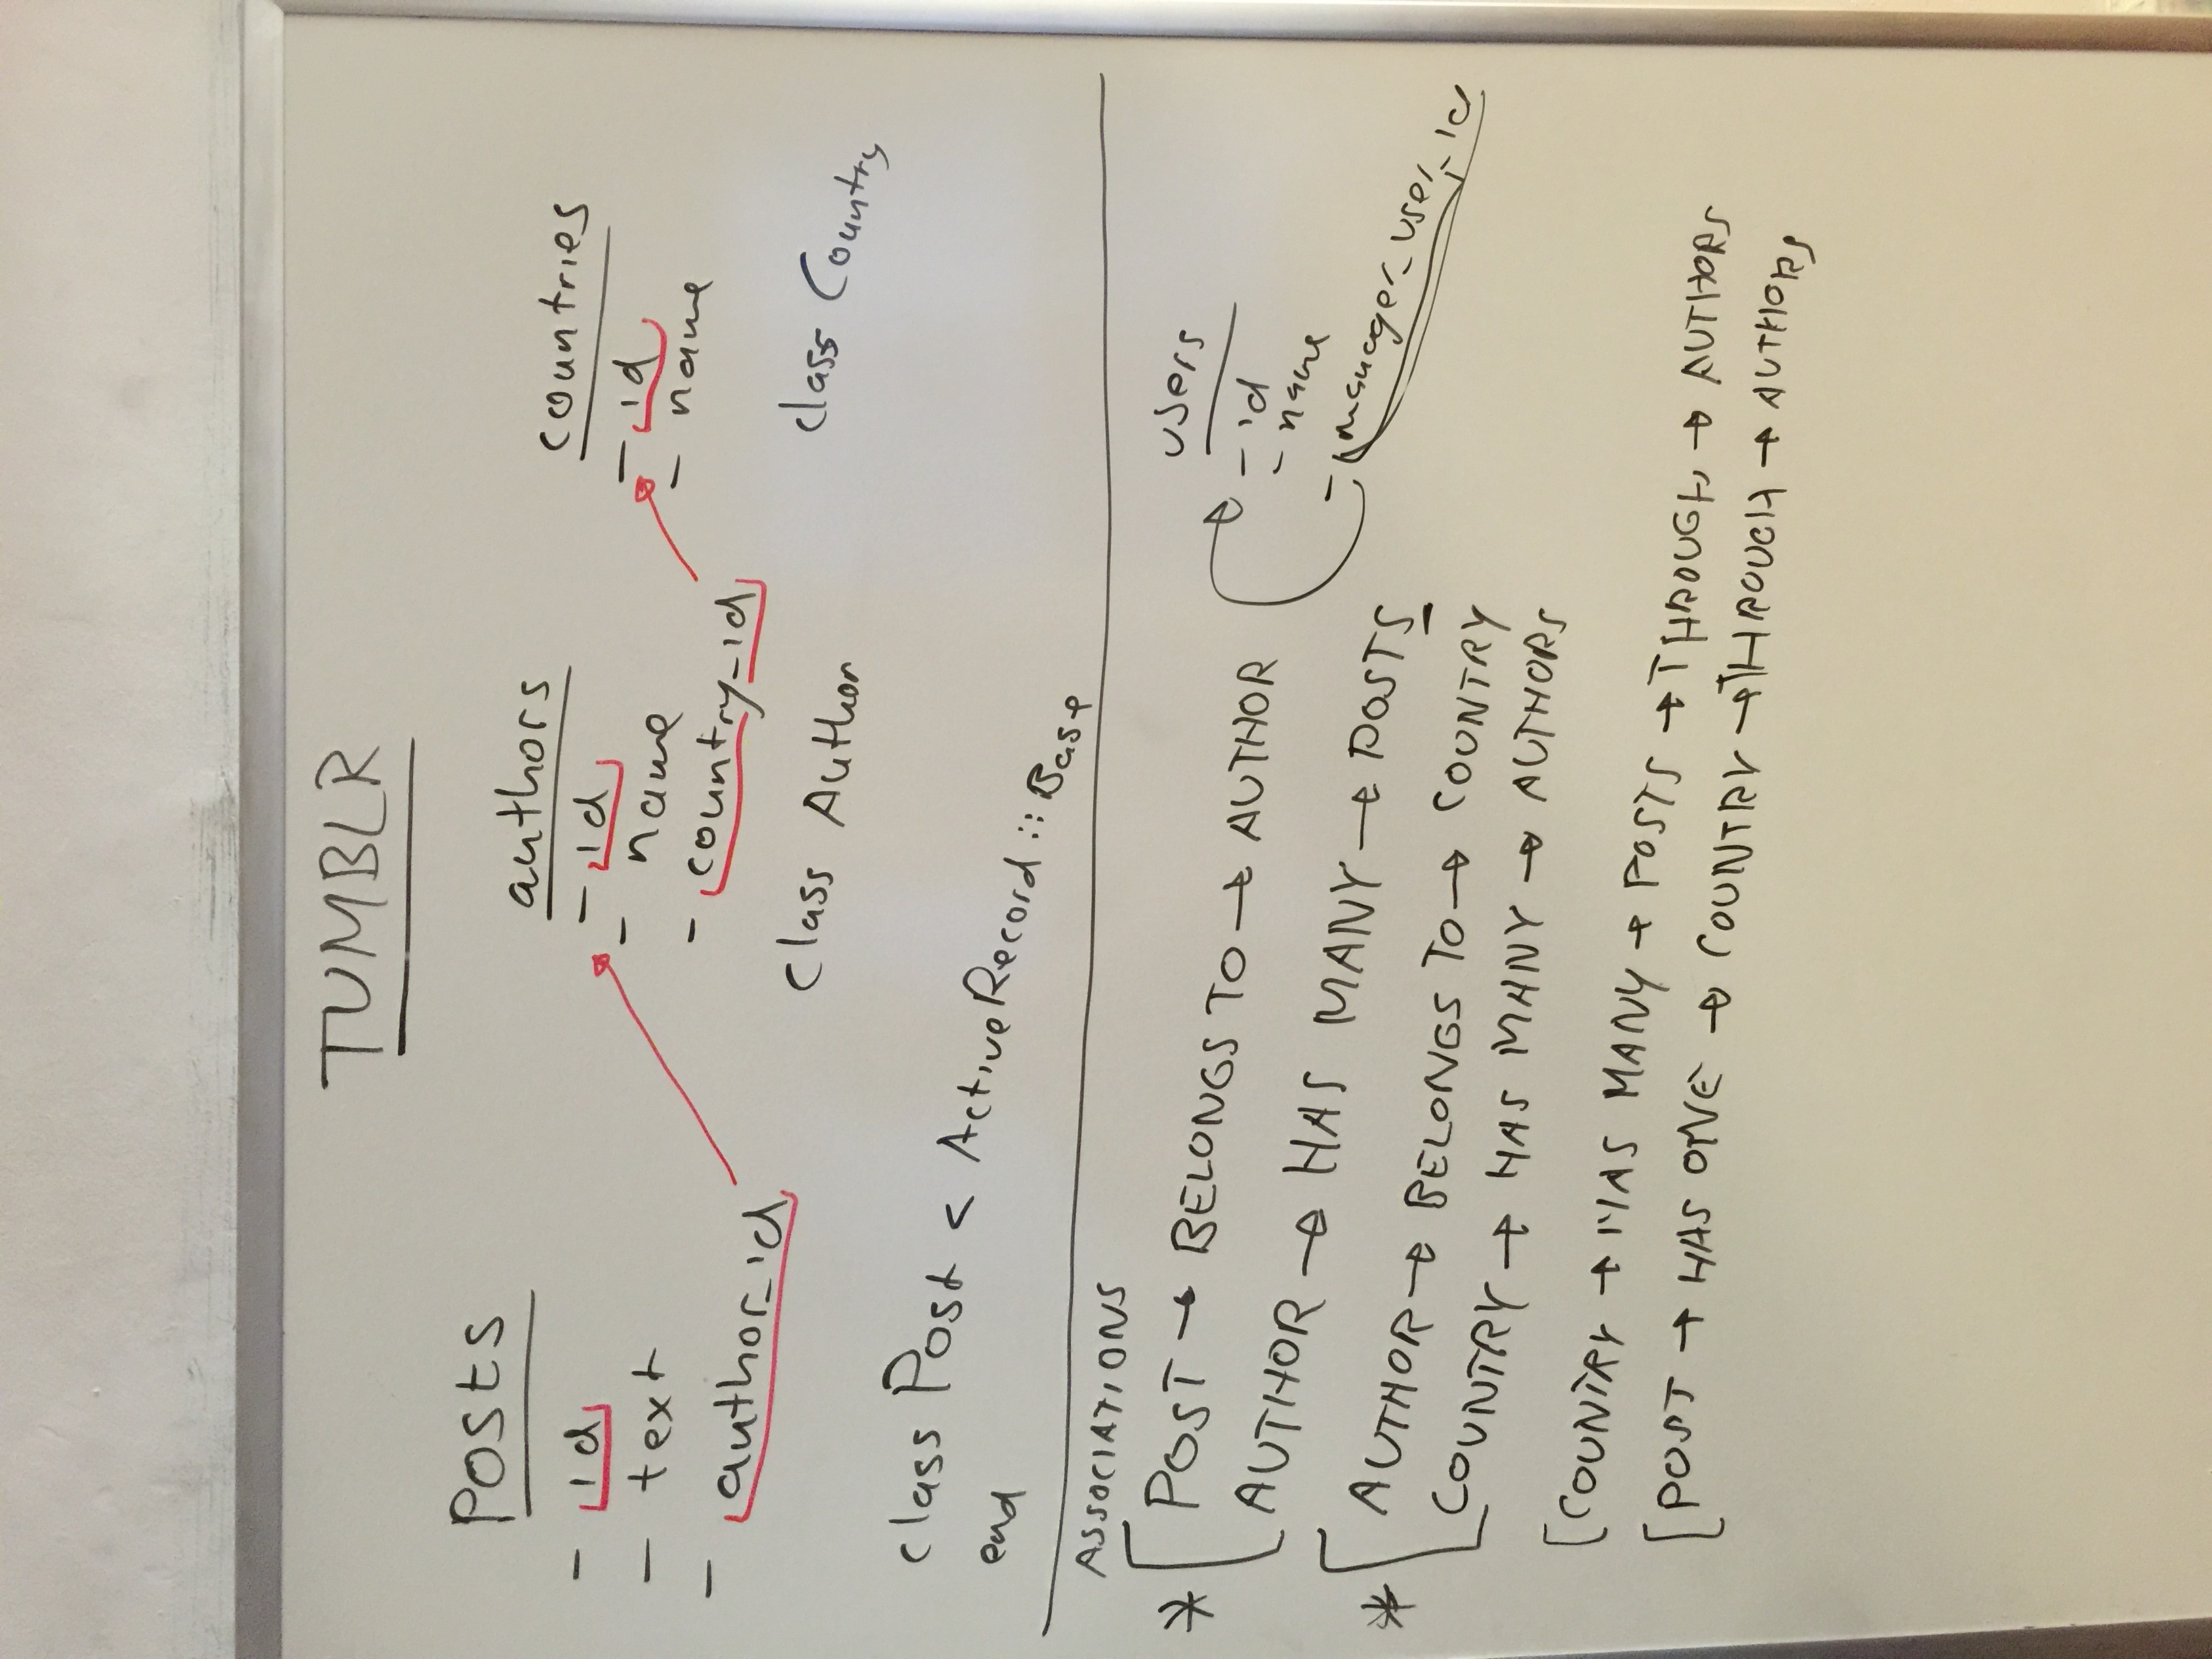 TUMBLR
Posts
- id
- text
- author_id
authors
- id
- name
- country_id
class Author
countries
- id
- name
class Country
class Post < ActiveRecord::Base
end
ASSOCIATIONS
* [ POST → BELONGS TO → AUTHOR
AUTHOR → HAS MANY → POSTS
* [ AUTHOR → BELONGS TO → COUNTRY
COUNTRY → HAS MANY → AUTHORS
[COUNTRY → HAS MANY → POSTS → THROUGH → AUTHORS
[POST → HAS ONE → COUNTRY → THROUGH → AUTHORS
users
- id
- name
- manager_user_id